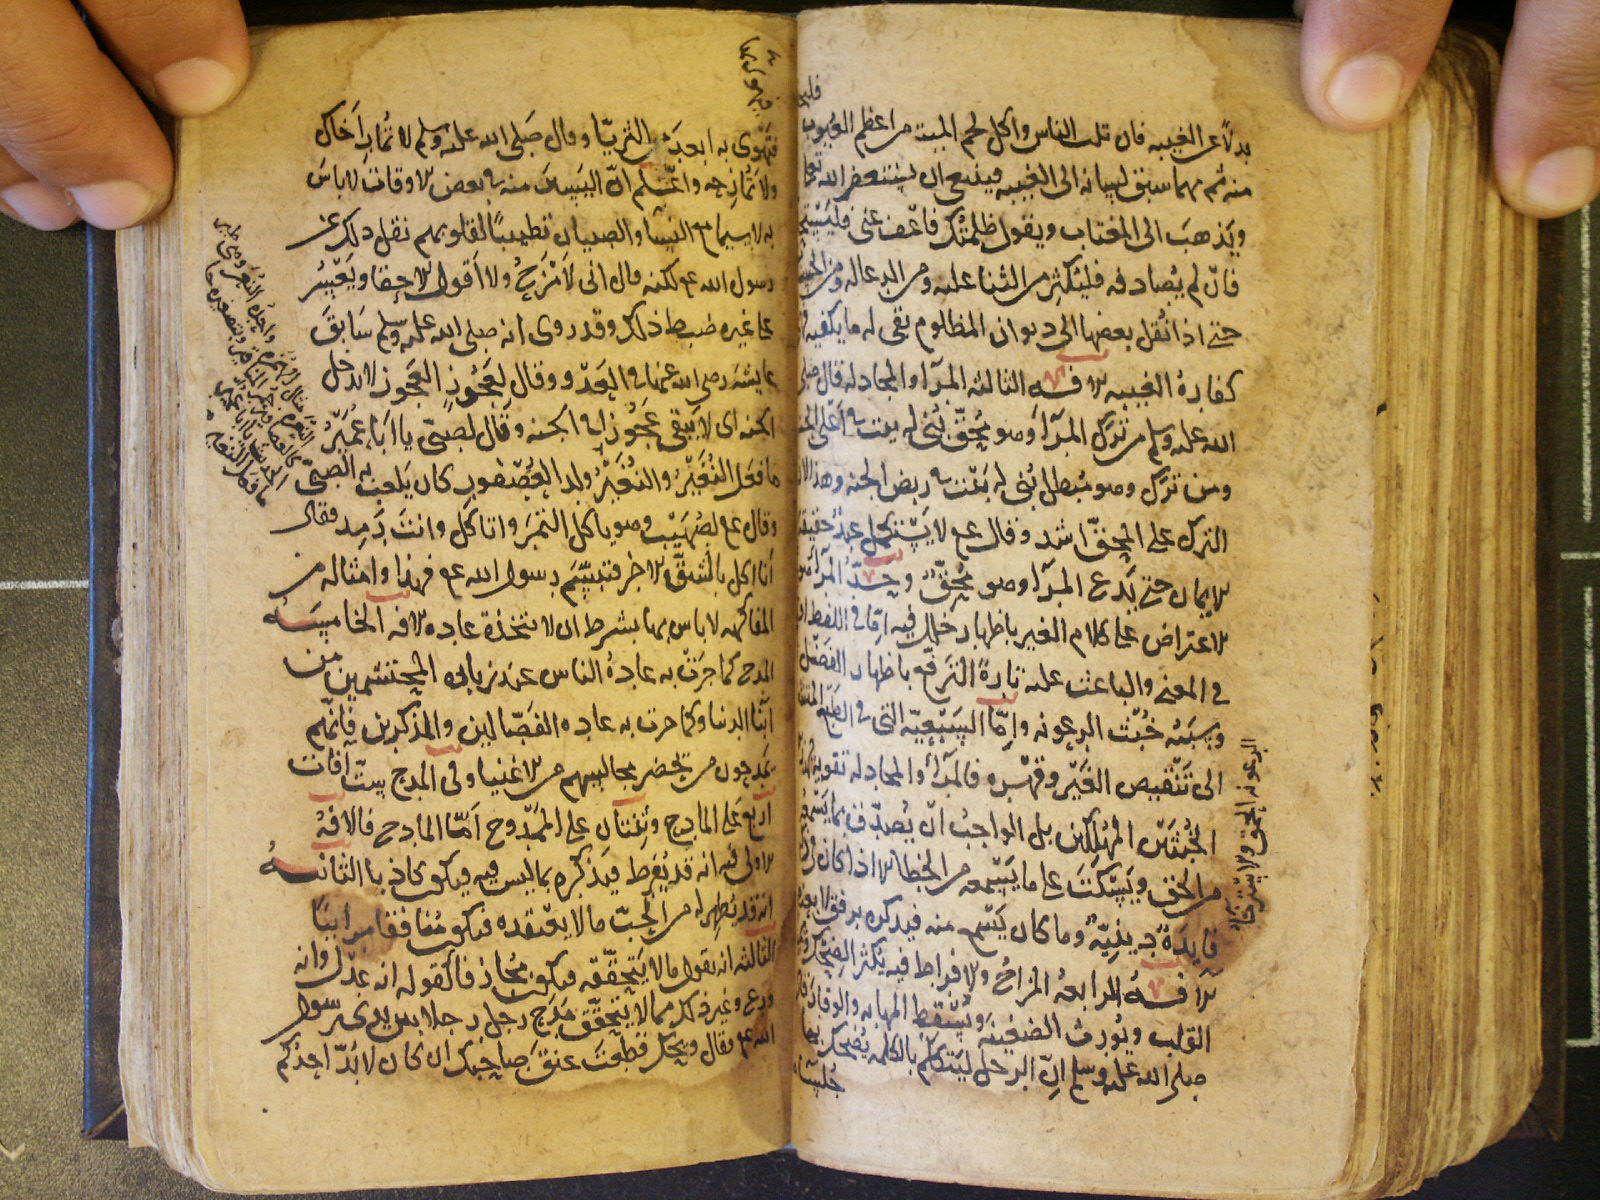 بدلا عن الغيبه فان قلت الناس واكل لحم الميت من اعظم العيوب
منه ثم مهما سبق لسانه الى الغيبه فينبغي ان يستغفر الله تعالى
ويذهب الى المغتاب ويقول ظلمتك فاعف عني
فان لم يصادفه فليكثر من الثنا عليه ومن الدعا له ومن
حتى اذا نقل بعضها الى ديوان المظلوم بقي له ما يكفيه
كفارة الغيبه الافه الثالثه المرآ والمجادله قال صلى
الله عليه وسلم من ترك المرآ وهو محق بنى له بيت في اعلى الجنه
ومن ترك وهو مبطل بنى له بيت في ربض الجنه وهذا لان
الترك على المحق اشد وقال عم لا يستكمل عبد حقيقة
الايمان حتى يدع المرآ وهو محق وحد المرآ
الاعتراض على كلام الغير باظهار خلل فيه اما في اللفظ
في المعنى والباعث عليه تارة الترفع باظهار الفضل
وسببه خبث الرعونه واما السبعيه التي في الطبع
الى تنقيص الغير وقهره فالمرآ والمجادله تقويه
الخبيثتين المهلكين بل الواجب ان يصدق بما يسمع
من الحق ويسكت على ما يسمعه من الخطا الا اذا كان في
فايدة دينية وما كان يسمع منه فيذكره برفق لا بعنف
الافه الرابعه المزاح والافراط فيه يكثر الضحك
القلب ويورث الضغينه ويسقط المهابه والوقار قال
صلى الله عليه وسلم ان الرجل ليتكلم بالكلمه يضحك بها
جلساه
الرعونه الحمق والاسترخا
فيهوي به ابعد من الثريا وقال صلى الله عليه وسلم لا تمار اخاك
ولا تمازحه واعلم ان اليسير منه في بعض الاوقات لا باس
به لاسيما مع النسا والصبيان تطييبا لقلوبهم نقل ذلك عن
رسول الله عم لكنه قال اني لامزح ولا اقول الا حقا ويعسر
على غيره ضبط ذلك وقد روى انه صلى الله عليه وسلم سابق
عايشه رضي الله عنها في العدو وقال لعجوز العجوز لا تدخل
الجنه اى لا يبقى عجوزا في الجنه وقال لصبى يا ابا عمير
ما فعل النغير والنغير ولد العصفور كان يلعب به الصبى
وقال عم لصهيب وهو ياكل التمر اتاكل وانت رمد فقال
انا اكل بالشق الاخر فتبسم رسول الله عم فهذا وامثاله من
المفاكهه لا باس بها بشرط ان لا يتخذه عاده الافه الخامسه
المدح كما جرت به عادة الناس عند زيارة المحتشمين من
ابنا الدنيا وكما جرت به عاده القصاصين والمذكرين فانهم
يمدحون من يحضر مجالسهم من الاغنيا وفى المدح ست آفات
اربع على المادح وثنتان على الممدوح اما المادح فالافه
الاولى فيه انه قد يفرط فيذكره بما ليس فيه فيكون كاذبا الثانيه
انه قد يظهر له من الحب ما لا يعتقده فيكون منافقا مرائيا
الثالثه انه يقول ما لا يتحققه فيكون مجازفا كقوله انه عدل وانه
ورع وغير ذلك مما لا يتحقق مدح رجل رجلا بين يدى رسول
الله عم فقال ويحك قطعت عنق صاحبك ان كان لا بد احدكم